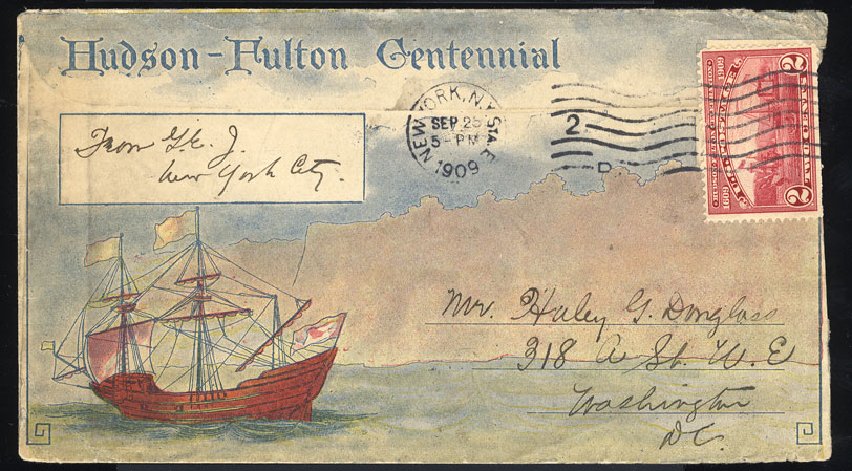 Hudson-Fulton Centennial
From G. L. J.
New York City.
NEW YORK, N.Y. STA. E
SEP 25
5- PM
1909
2
D
HUDSON-FULTON CELEBRATION
1609 1909
U.S. POSTAGE
2 CENTS 2
Mr. Haley G. Douglass
318 A St. N. E
Washington
D.C.